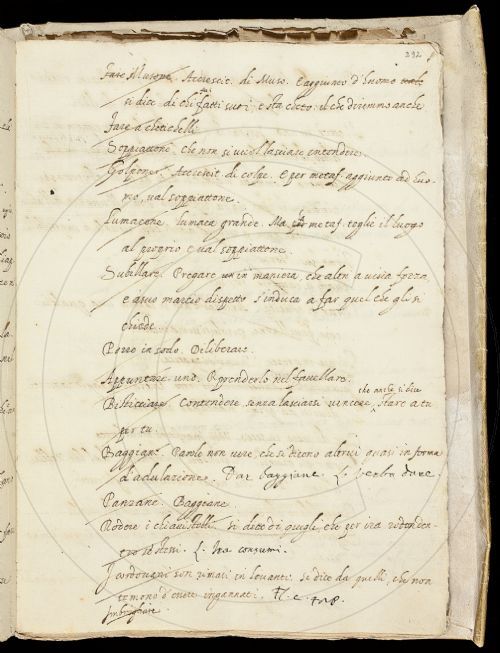 292
Fare Musone. Accrescit. di Muso. E aggiunto d'huomo
si dice di chi fatti suoi, e sta cheto. il che diremmo anche
Fare a chetichelli.
Soppiattone. che non si vuol lasciare intendere.
Golpone. Accrescit. di Golpe. E per metaf. aggiunto ad huo-
mo, val soppiattone.
Lumacone. lumaca grande. Ma metaf. toglie il luogo
al proprio e val soppiattone.
Subillare. Pregare in maniera, che altri a viva forza
e a suo marcio dispetto s'induca a far quel che gli si
chiede
Porro in sodo. Deliberare.
Appuntare uno. Riprenderlo nel favellare.
che anche si dice
Bisticciare. Contendere senza lasciarsi vincere, stare a tu
per tu.
Baggiane. Parole non vere, che si dicono altrui quasi in forma
d'adulazione. Dar baggiane. L. verba dare.
Panzane. Baggeane.
Rodere i chiavistelli. si dice di quegli, che per ira
L. Ira consumi.
I cordovani son rimasi in Levanti. se dice da quelli, che non
temono d'essere ingannati. Fl.
Imbrogliare.